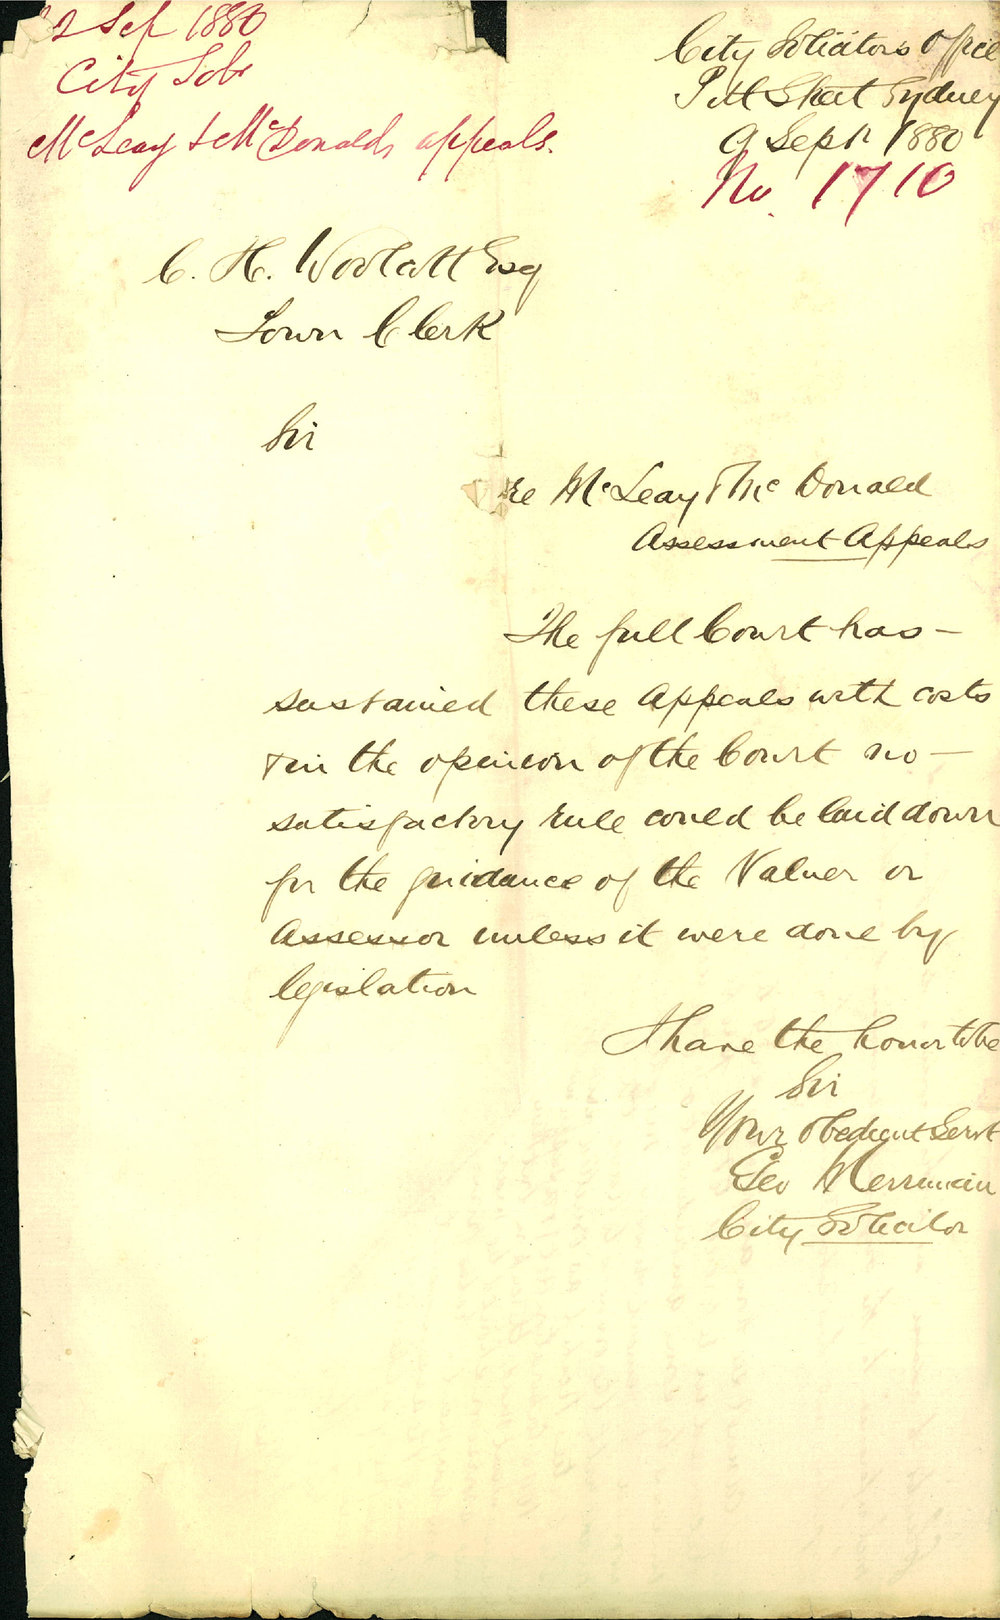 2 Sep 1880
City Solr
McLeay & McDonalds appeals.
City Solicitors Office
Pitt Street Sydney
9 Sept 1880
No. 1710
C. H. Woolcott Esq
Town Clerk
Sir
re McLeay & McDonald
Assessment Appeals
The full Court has –
sustained these Appeals with costs
& in the opinion of the Court no –
satisfactory rule could be laid down
for the guidance of the Valuer or
Assessor unless it were done by
legislation
I have the honor to be
Sir
Your obedient Servt
Geo Merriman
City Solicitor